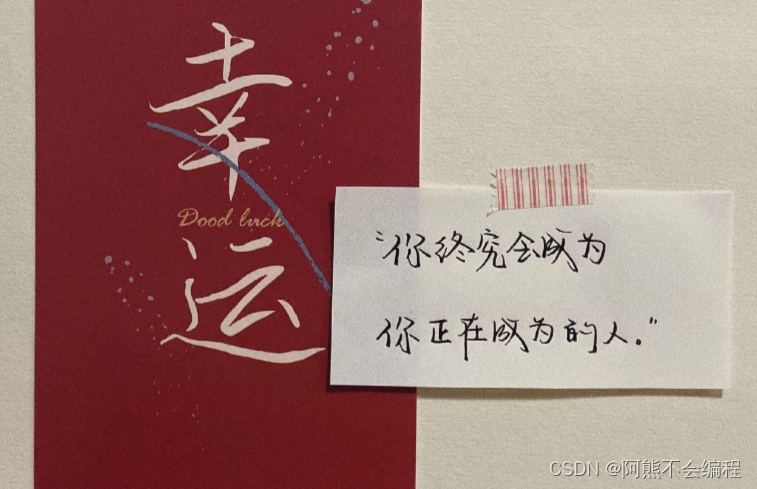 幸
Dood luck
运
“你终究会成为
你正在成为的人。”
CSDN @阿熊不会编程